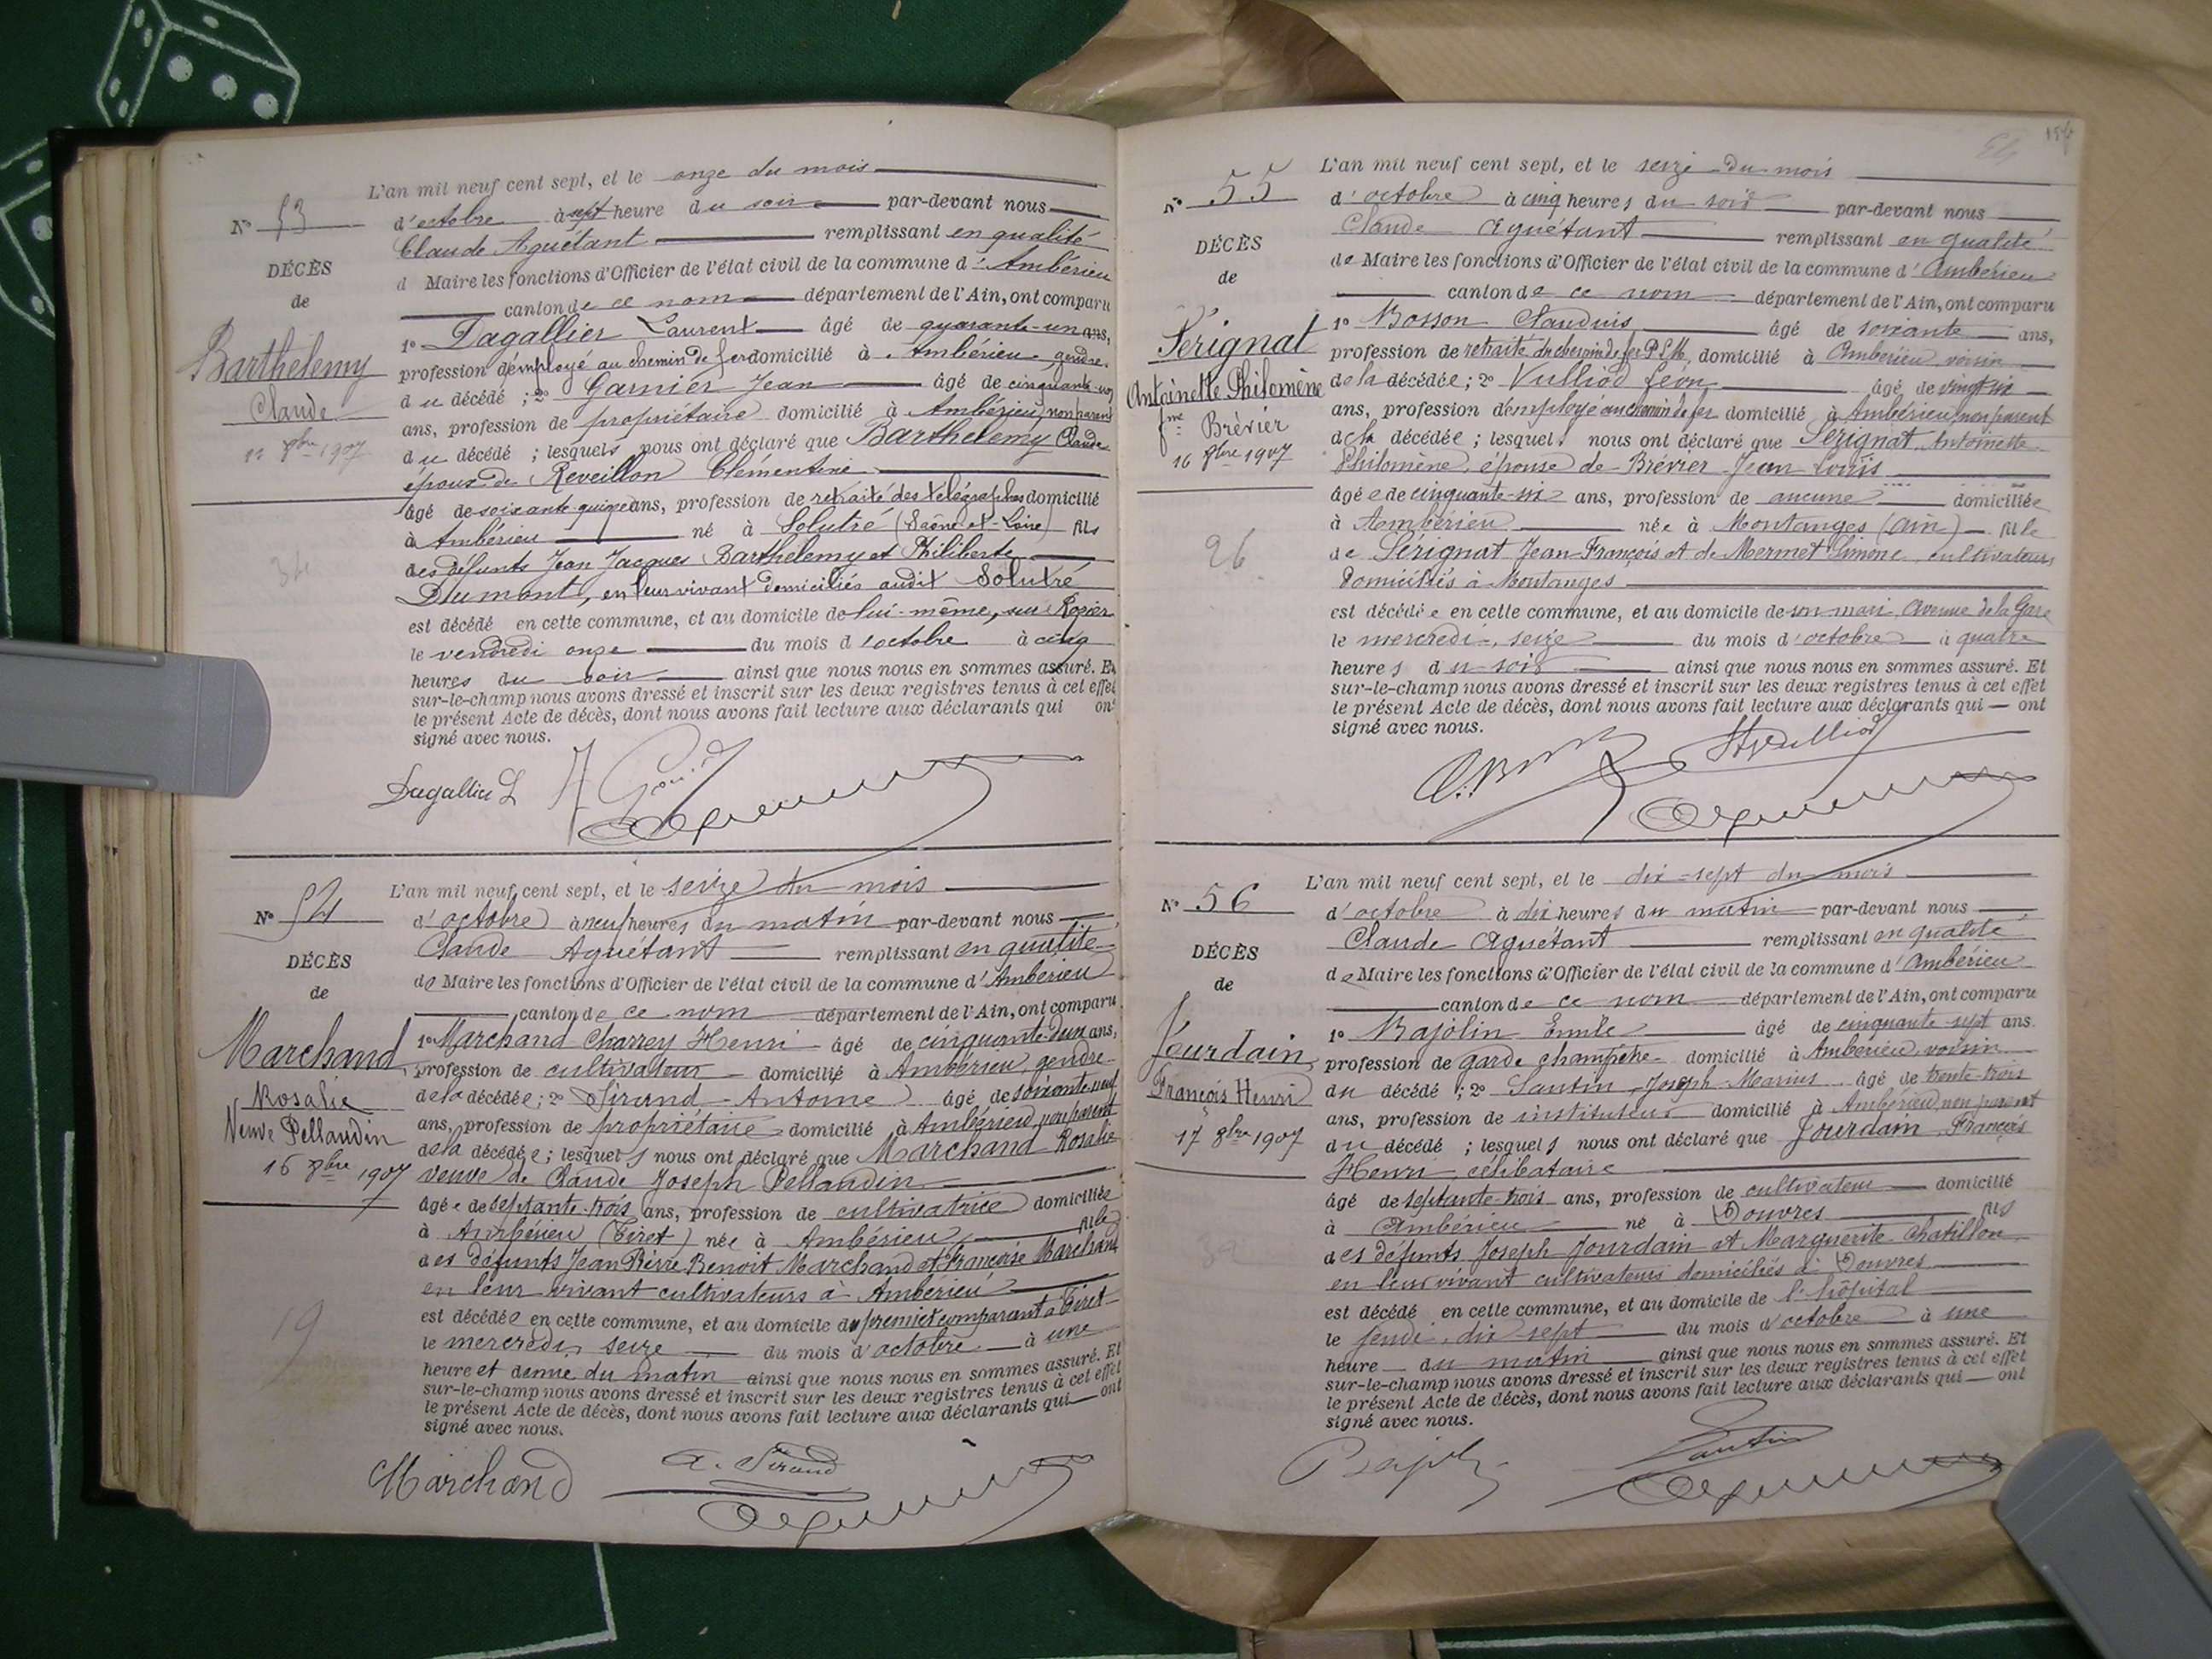 N° 53
DÉCÈS
de
Barthélemy
Claude
11 8bre 1907
L'an mil neuf cent sept, et le onze du mois
d'octobre à sept heure du soir par-devant nous
Claude Aguétant remplissant en qualité
d Maire les fonctions d'Officier de l'état civil de la commune d'Ambérieu
canton de ce nom département de l'Ain, ont comparu
1° Dagallier Laurent âgé de quarante-un ans,
profession d'employé au chemin de fer domicilié à Ambérieu, gendre
du décédé ; 2° Garnier Jean âgé de cinquante-un
ans, profession de propriétaire domicilié à Ambérieu, non parent
du décédé ; lesquels nous ont déclaré que Barthélemy Claude
époux de Reveillon Clémentine
âgé de soixante-quinze ans, profession de retraité des télégraphes domicilié
à Ambérieu né à Solutré (Saône-et-Loire) fils
des défunts Jean Jacques Barthelemy et Philiberte
Dumont, en leur vivant domiciliés audit Solutré
est décédé en cette commune, et au domicile de lui-même, rue Rozier
le vendredi onze du mois d'octobre à cinq
heures du soir ainsi que nous nous en sommes assuré. Et
sur-le-champ nous avons dressé et inscrit sur les deux registres tenus à cet effet
le présent Acte de décès, dont nous avons fait lecture aux déclarants qui ont
signé avec nous.
Dagallier L
N° 54
DÉCÈS
de
Marchand
Rosalie
Veuve Pellaudin
16 8bre 1907
19
L'an mil neuf cent sept, et le seize du mois
d'octobre à neuf heures du matin par-devant nous
Claude Aguétant remplissant en qualité
de Maire les fonctions d'Officier de l'état civil de la commune d'Ambérieu
canton de ce nom département de l'Ain, ont comparu
1° Marchand Charrey Henri âgé de cinquante-deux ans,
profession de cultivateur domicilié à Ambérieu, gendre
de la décédée ; 2° Sirand Antoine âgé de soixante-neuf
ans, profession de propriétaire domicilié à Ambérieu, non parent
de la décédée ; lesquels nous ont déclaré que Marchand Rosalie
veuve de Claude Joseph Pellaudin
âgée de septante-trois ans, profession de cultivatrice domiciliée
à Ambérieu (Tiret) née à Ambérieu fille
des défunts Jean Pierre Benoit Marchand et Françoise Marchand
en leur vivant cultivateurs à Ambérieu
est décédée en cette commune, et au domicile du premier comparant à Tiret
le mercredi, seize du mois d'octobre à une
heure et demie du matin ainsi que nous nous en sommes assuré. Et
sur-le-champ nous avons dressé et inscrit sur les deux registres tenus à cet effet
le présent Acte de décès, dont nous avons fait lecture aux déclarants qui ont
signé avec nous.
Marchand A. Sirand
N° 55
DÉCÈS
de
Sérignat
Antoinette Philomène
fme Brévier
16 8bre 1907
26
L'an mil neuf cent sept, et le seize du mois
d'octobre à cinq heures du soir par-devant nous
Claude Aguétant remplissant en qualité
de Maire les fonctions d'Officier de l'état civil de la commune d'Ambérieu
canton de ce nom département de l'Ain, ont comparu
1° Bosson Claudius âgé de soixante ans,
profession de retraité du chemin de fer P.L.M. domicilié à Ambérieu voisin
de la décédée ; 2° Vulliod Léon âgé de vingt-six
ans, profession d'employé au chemin de fer domicilié à Ambérieu, non parent
de la décédée ; lesquels nous ont déclaré que Sérignat Antoinette
Philomène, épouse de Brévier Jean Louis
âgée de cinquante-six ans, profession de aucune domiciliée
à Ambérieu née à Montanges (Ain) fille
de Sérignat Jean-François et de Mermet Simone, cultivateurs
domiciliés à Montanges
est décédée en cette commune, et au domicile de son mari, Avenue de la Gare
le mercredi, seize du mois d'octobre à quatre
heures du soir ainsi que nous nous en sommes assuré. Et
sur-le-champ nous avons dressé et inscrit sur les deux registres tenus à cet effet
le présent Acte de décès, dont nous avons fait lecture aux déclarants qui — ont
signé avec nous.
N° 56
DÉCÈS
de
Jourdain
François Henri
17 8bre 1907
L'an mil neuf cent sept, et le dix-sept du mois
d'octobre à dix heures du matin par-devant nous
Claude Aguétant remplissant en qualité
de Maire les fonctions d'Officier de l'état civil de la commune d'Ambérieu
canton de ce nom département de l'Ain, ont comparu
1° Bajolin Emile âgé de cinquante-sept ans.
profession de garde champêtre domicilié à Ambérieu, voisin
du décédé ; 2° Santin Joseph-Marius âgé de trente-trois
ans, profession de instituteur domicilié à Ambérieu, non parent
du décédé ; lesquels nous ont déclaré que Jourdain François
Henri célibataire
âgé de septante-trois ans, profession de cultivateur domicilié
à Ambérieu né à Douvres fils
des défunts Joseph Jourdain et Marguerite Chatillon
en leur vivant cultivateurs domiciliés à Douvres
est décédé en cette commune, et au domicile de l'hôpital
le jeudi, dix-sept du mois d'octobre à une
heure du matin ainsi que nous nous en sommes assuré. Et
sur-le-champ nous avons dressé et inscrit sur les deux registres tenus à cet effet
le présent Acte de décès, dont nous avons fait lecture aux déclarants qui — ont
signé avec nous.